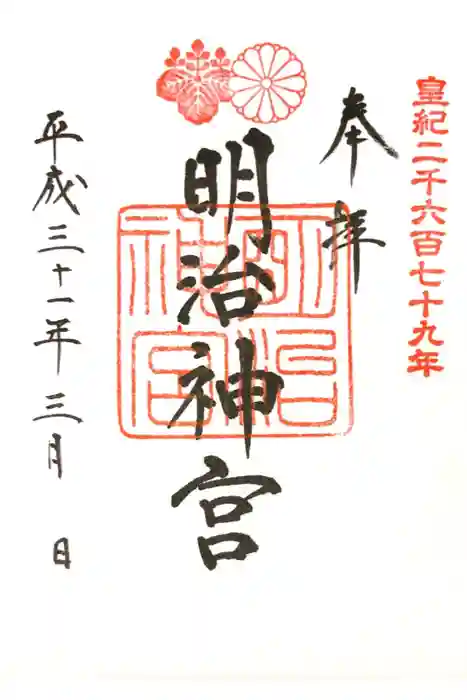 皇紀二千六百七十九年
奉拝
明治神宮
明治神宮
平成三十一年三月 日